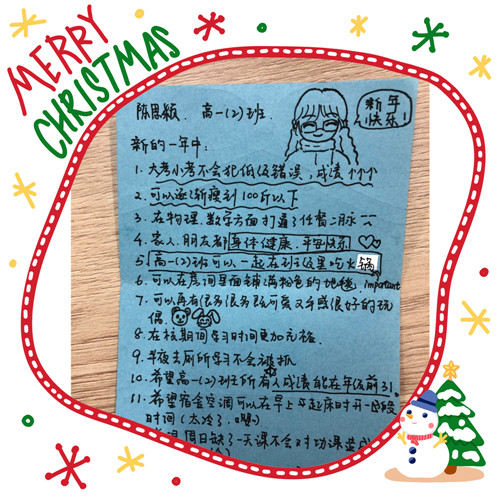 MERRY
CHRISTMAS
陈思颖 高一(2)班.
新年
快乐!
新的一年中:
1. 大考小考不会犯低级错误,成绩↑↑↑
2. 可以逐渐瘦到100斤以下
3. 在物理,数学方面打通了任督二脉
4. 家人,朋友都身体健康,平安快乐
5. 高一(2)班可以一起在班级里吃火锅
6. 可以在房间里面铺满粉色的地毯. important
7. 可以再有很多很多既可爱又手感很好的玩
偶.
8. 在校期间学习时间更加充裕.
9. 半夜去厕所学习不会被抓
10. 希望高一(2)班所有人成绩能在年级前31.
11. 希望宿舍空调可以在早上起床时开一段
时间(太冷了.)
假日缺了一天课不会对功课造成